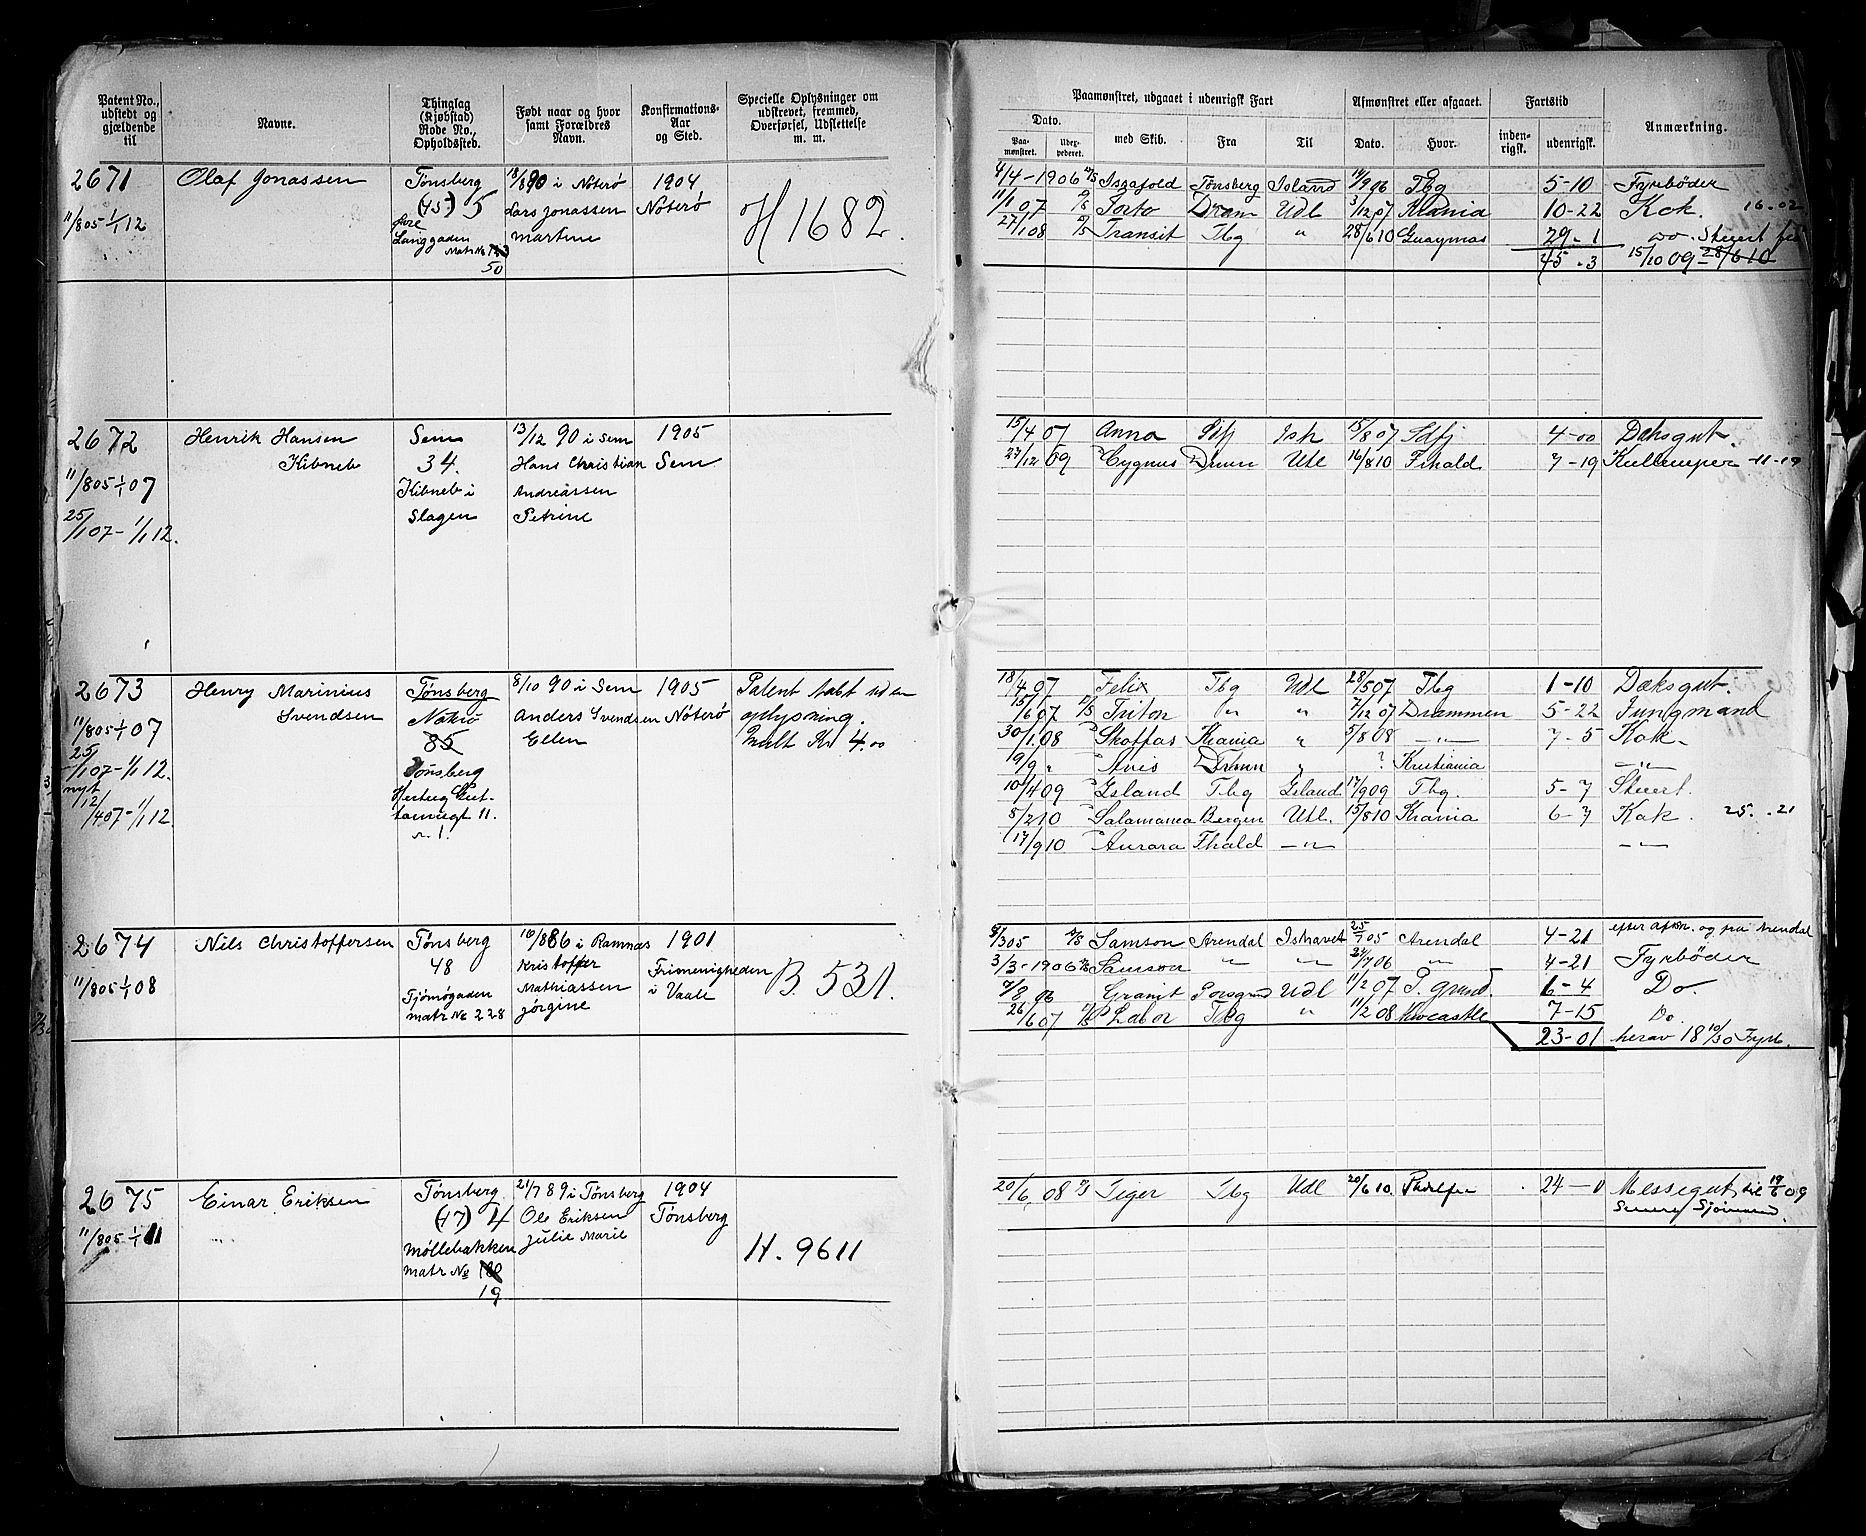 Patent No., udstedt og gjældende til
Navne.
Thinglag (Kjøbstad) Rode No., Opholdssteb.
Født naar og hvor samt Forældres Navn.
Konfirmations-Aar og Sted.
Specielle Oplysninger om udstrevet, fremmed, Overførsel, Udslettelse m. m.
Paamønstret, udgaaet i udenrigsk Fart
Dato.
Paa-mønstret.
med Skib.
Fra
Til
Afmønstret eller afgaaet.
Dato.
Hvor.
Fartstid
inden-rigsk.
udenrigsk.
Anmærkning.
2671
11/8 05 1/1 12
Olaf Jonassen
Tønsberg
(45) 5
Øvre
Langgaden
Matr No
50
18/8 90 i Nøterø
Lars Jonassen
Martine
1904
Nøterø
H 1682.
4/4-1906 Isafold Tønsberg Island 11/9 06 Tbg 5-10 Fyrbøder
11/1 07 Porto Dram Udl 3/12 07 Krania 10-22 Kok. 16-02
27/1 08 Transit Tbg " 28/6 10 Guaymas 29-1 Do. Stuert fra
45-3 15/10 09-28/6 10
2672
11/8 05 1/1 07
25/1 07-1/1 12.
Henrik Hansen
Kibneb
Sem
34.
Kibneb i
Slagen
13/12 90 i Sem
Hans Christian
Andreassen
Petrine
1905
Sem
15/4 07 Anna Sdfj Ish 15/8 07 Sdfj 4-00 Dæksgut.
27/12 09 Cygnus Dram Utl 16/8 10 Frhald 7-19 Kullemper 11-19
2673
11/8 05 1/1 07
25/1 07-1/1 12.
nyt
12/4 07-1/1 12.
Henry Marinius
Svendsen
Tønsberg
Nøterø
85
Tønsberg
11.
8/10 90 i Sem
Anders Svendsen
Ellen
1905
Nøterø
Patent tabt uden
oplysning.
Mult Kr 4.00
18/4 07 Felix Tbg Udl 28/5 07 Tbg 1-10 Dæksgut.
15/6 07 Triton " " 7/12 07 Drammen 5-22 Jungmand
30/1 08 Skoffas Krania " 5/8 08 -"- 7-5 Kok
19/9 " Avis Dram " ? Kristiania -"-
10/4 09 Island Tbg Island 17/9 09 Tbg. 5-7 Stuert.
5/2 10 Salamanca Bergen Utl. 15/8 10 Krania 6-7 Kok. 25.-21
17/9 10 Aurora Fhald -"- -"-
2674
11/8 05 1/1 08
Nils Christoffersen
Tønsberg
48
Tjømøgaden
matr No 228
10/8 86 i Ramnæs
Kristoffer
Mathiassen
Jørgine
1901
Frimenigheden
i Vaale
B. 531.
8/3 05 Samson Arendal Ishavet 25/7 05 Arendal 4-21 efter afm. og paa Arendal
3/3-1906 Samson " " 24/7 06 " 4-21 Fyrbøder
7/8 06 Granit Porsgrund Udl 11/2 07 P. grund. 6-4 Do.
26/6 07 Labor Tbg " 11/2 08 Newcastle 7-15 Do
23-01 herav 18 10/30 Fyrb.
2675
11/8 05 1/1 11
Einar Eriksen
Tønsberg
(47) 4
Møllebakken
Matr No
19
21/7 89 i Tønsberg
Ole Eriksen
Julie Marie
1904
Tønsberg
H. 9611
20/6 08 Tiger Tbg Udl 20/6 10. 24-0 Messegut til 19/6 09
Senere Sjømand.